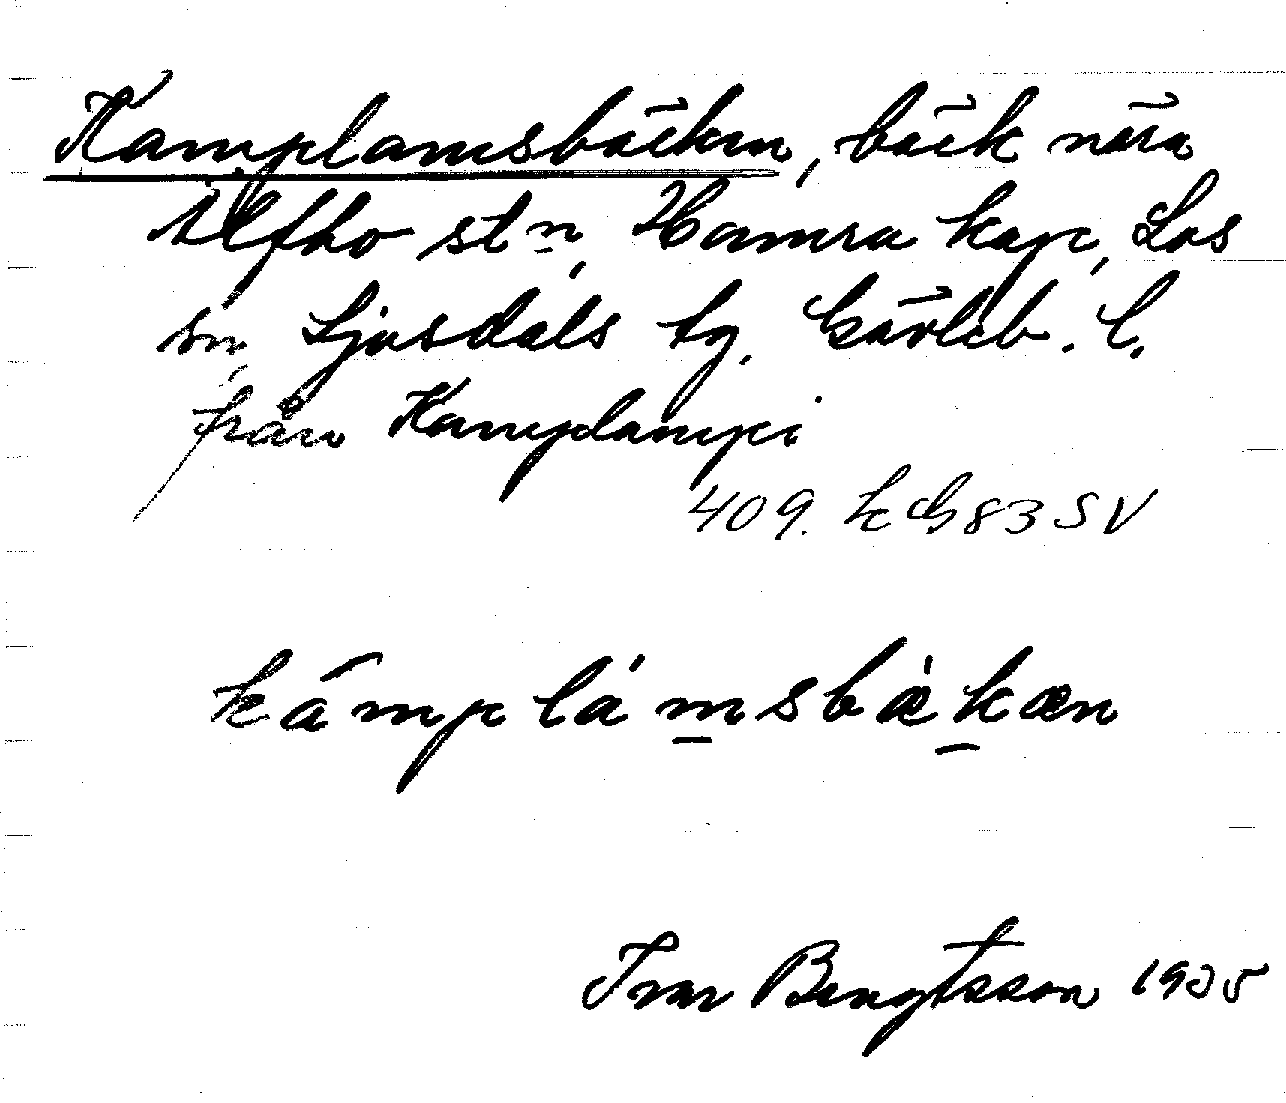 Kamplamsbäcken, bäck nära
Älfho stn, Hamra kap, Los
sn, Ljusdals tg. Gävleb. l.
från Kamplampi
409. k G 83 SV
kámplámsbæ̀kæn
Ivar Bengtsson 1935